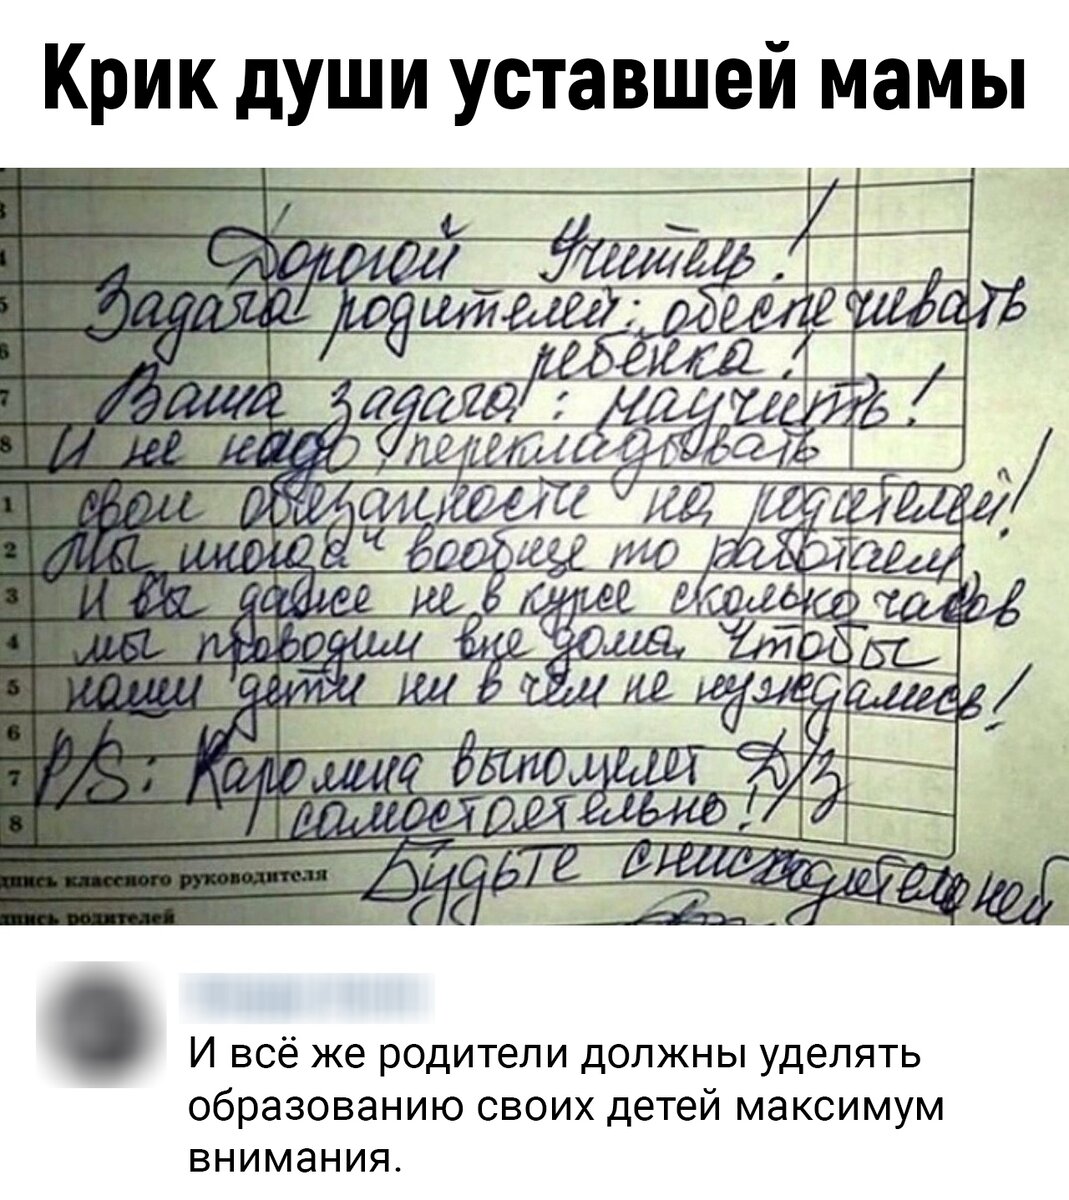 Крик души уставшей мамы
3
4
5
6
7
8
1
2
3
4
5
6
7
8
Дорогой Учитель!
Задача родителей: обеспечивать
ребёнка!
Ваша задача: научить!
И не надо перекладовать
свои обязанности на родителей!
Мы иногда вообще то работаем
И вы даже не в курсе сколько часов
мы проводим вне дома, Чтобы
наши дети ни в чём не нуждались!
P/S: Каролина выполняет Д/З
самостоятельно!
Будьте снисходительней
пись классного руководителя
пись родителей
И всё же родители должны уделять
образованию своих детей максимум
внимания.